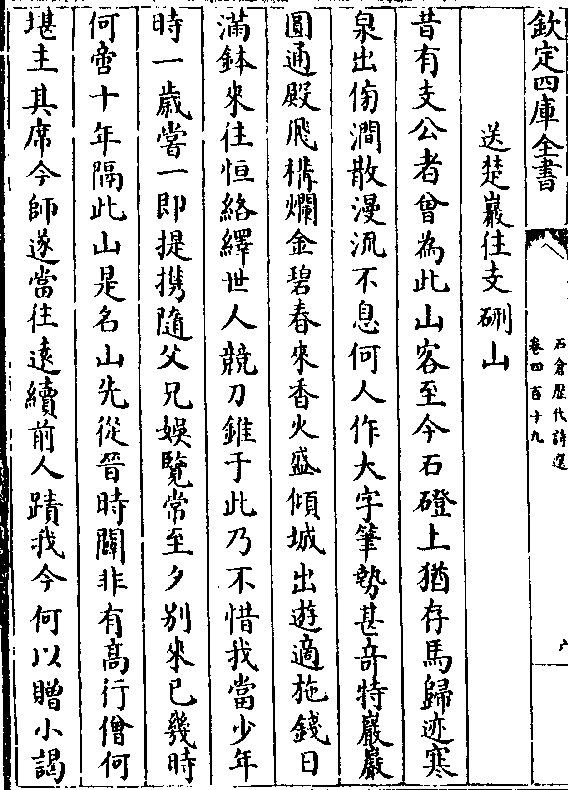 欽定四庫全書
石倉歷代詩選
卷四百十九
六
送楚巖住支硎山
昔有支公者曾為此山客至今石磴上猶存馬歸迹寒
泉出傍澗散漫流不息何人作大字筆勢甚竒特巖巖
圓通殿飛構爛金碧春來香火盛傾城出遊適施錢日
滿鉢來往恒絡繹世人競刀錐于此乃不惜我當少年
時一歲嘗一即提携隨父兄娱覽常至夕别來已幾時
何啻十年隔此山是名山先從晉時闢非有高行僧何
堪主其席今師遂當往遠續前人蹟我今何以贈小謁